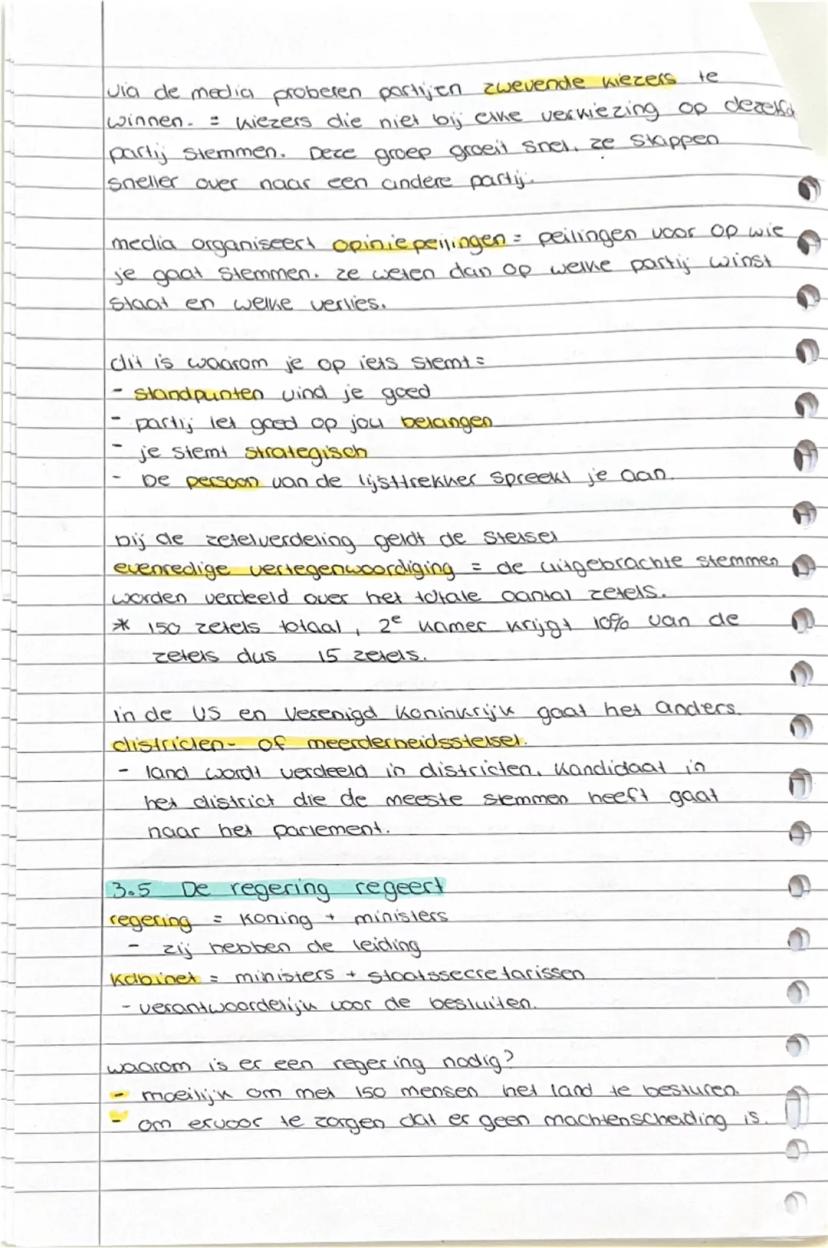 via de media proberen partijen zwevende kiezers te
winnen. = kiezers die niet bij elke verkiezing op dezelfde
partij stemmen. Deze groep groeit snel. ze stappen
sneller over naar een andere partij.
media organiseert opiniepeilingen = peilingen voor op wie
je gaat stemmen. ze weten dan op welke partij winst
staat en welke verlies.
dit is waarom je op iets stemt =
- standpunten vind je goed
- partij let goed op jou belangen
- je stemt strategisch
- De persoon van de lijsttrekker spreekt je aan.
bij de zetelverdeling geldt de stelsel
evenredige vertegenwoordiging = de uitgebrachte stemmen
worden verdeeld over het totale aantal zetels.
* 150 zetels totaal, 2e kamer krijgt 10% van de
zetels dus 15 zetels.
in de US en Verenigd Koninkrijk gaat het anders.
districten- of meerderheidsstelsel.
- land wordt verdeeld in districten. Kandidaat in
het district die de meeste stemmen heeft gaat
naar het parlement.
3.5 De regering regeert
regering = Koning + ministers
- zij hebben de leiding
Kabinet = ministers + staatssecretarissen
- verantwoordelijk voor de besluiten.
waarom is er een regering nodig?
- moeilijk om met 150 mensen het land te besturen.
- om ervoor te zorgen dat er geen machtenscheiding is.